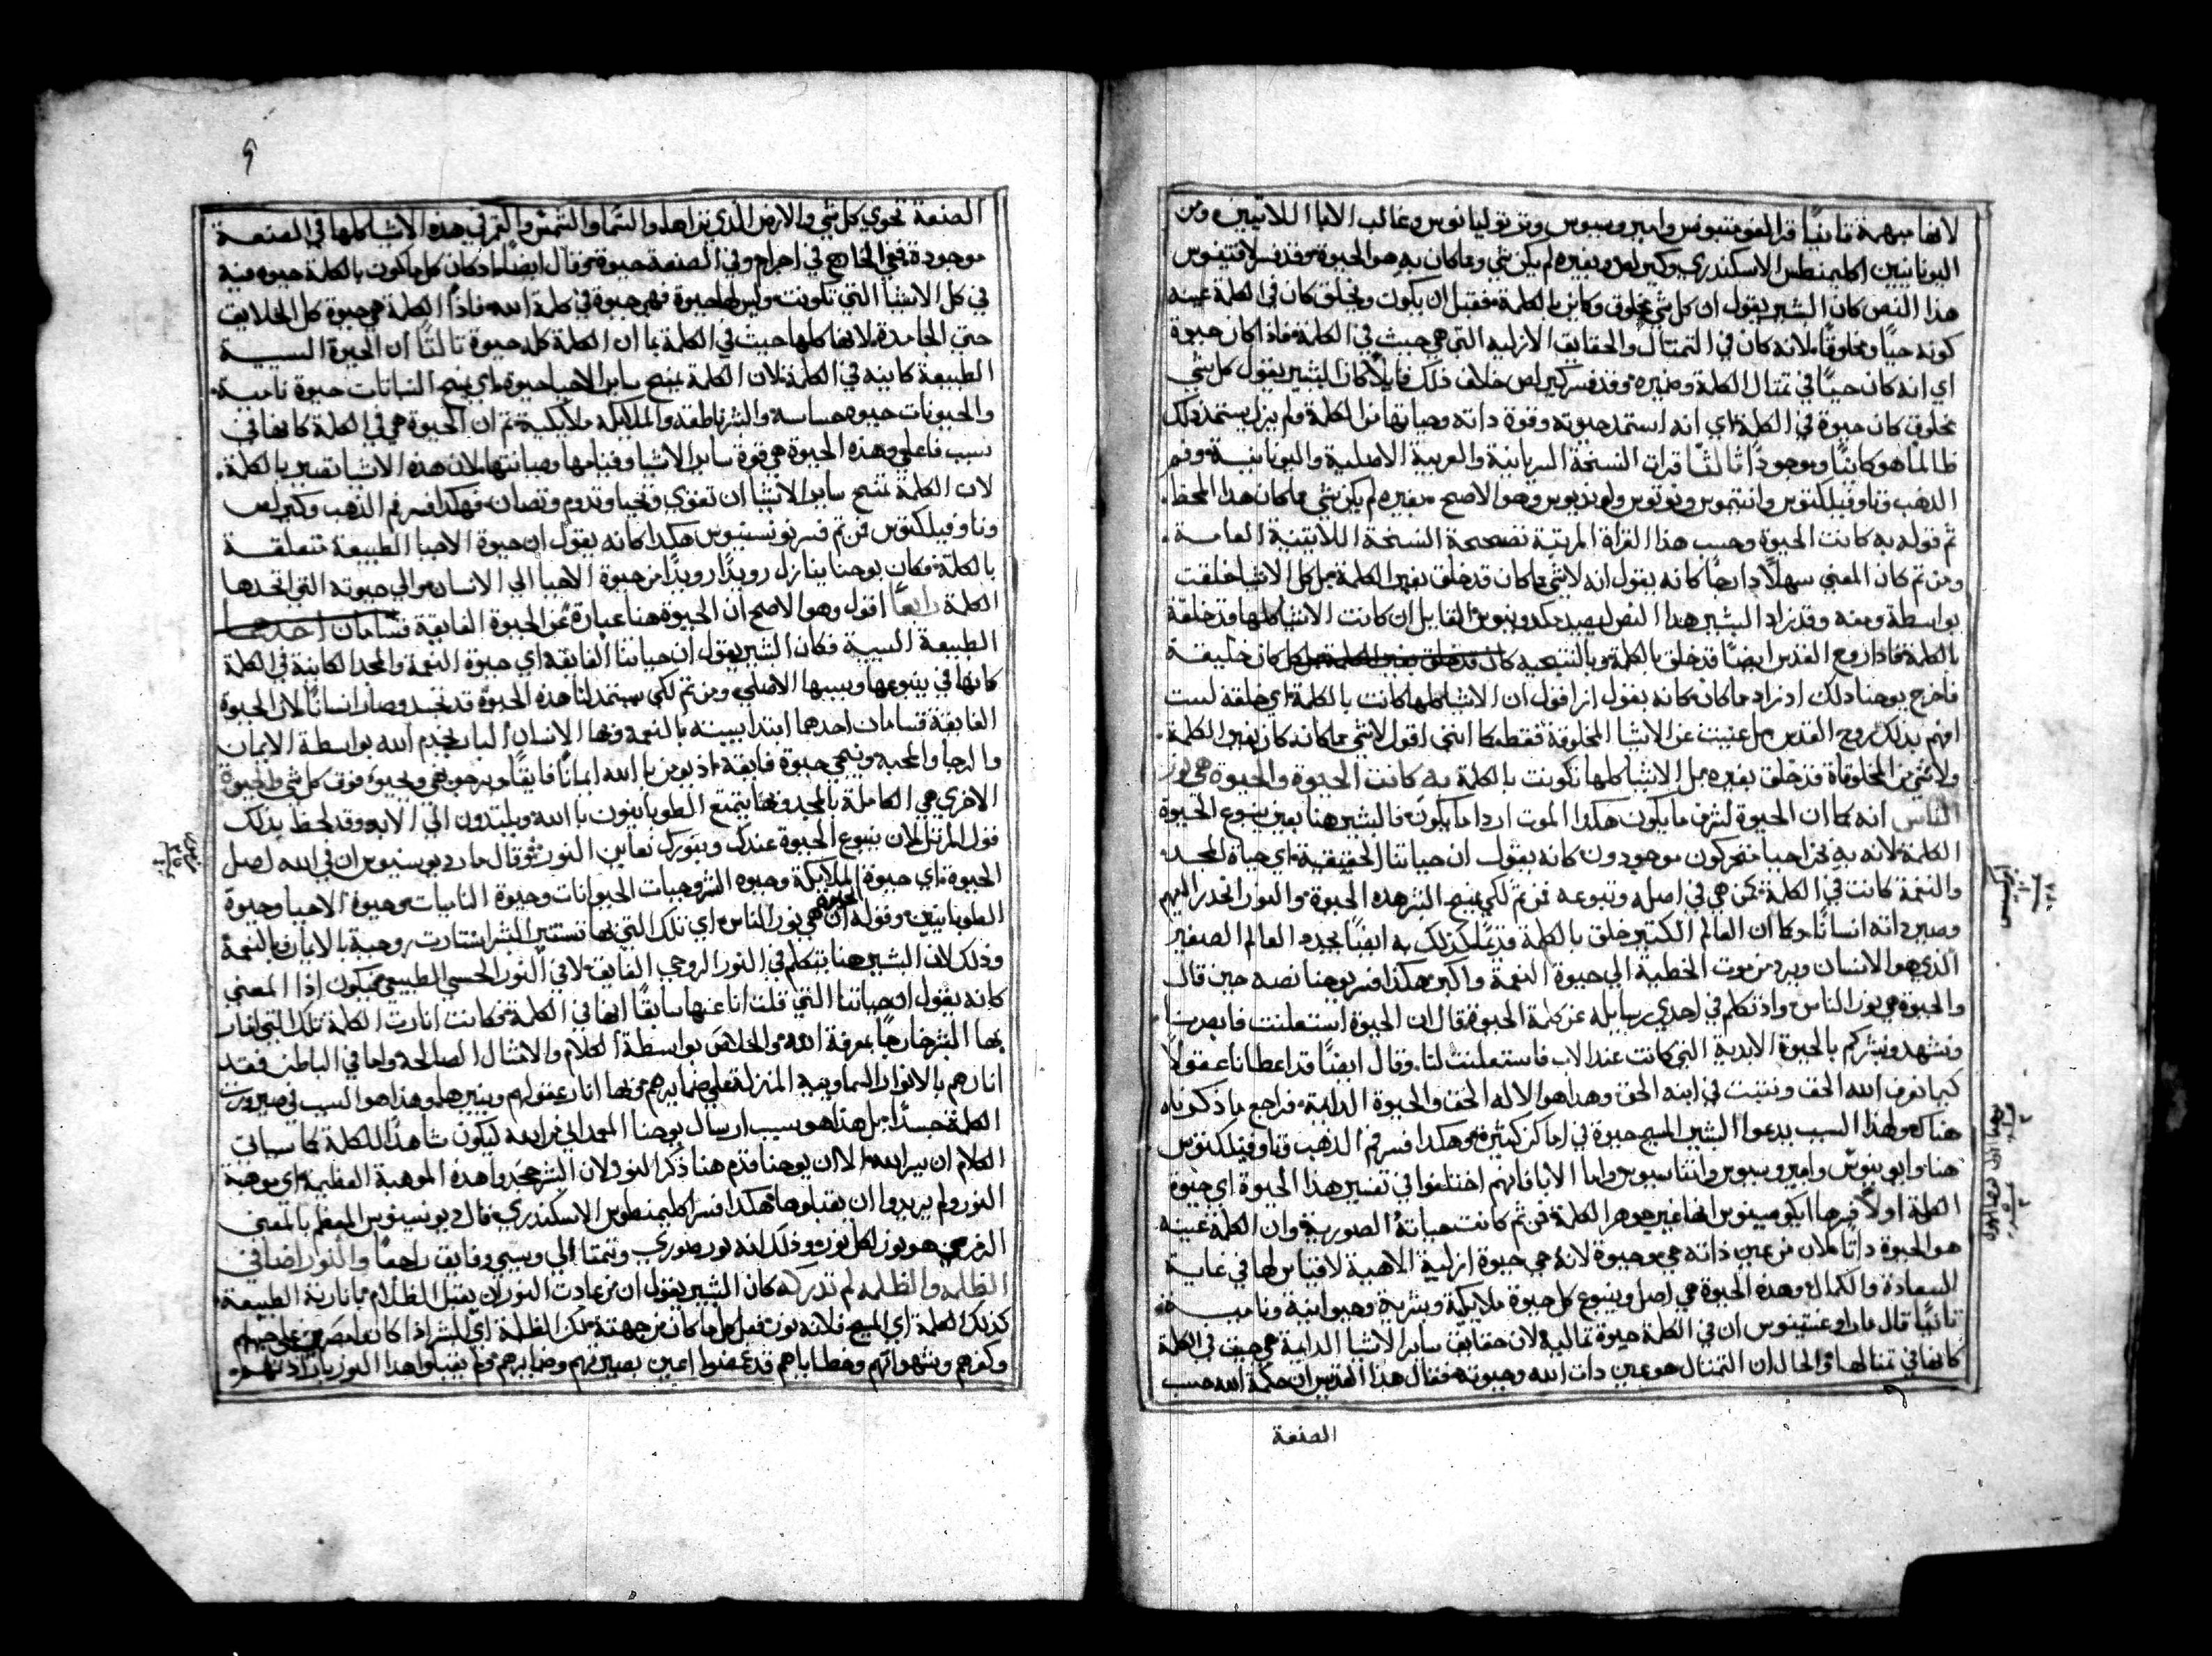 لانها مبهمة ثانيًا قرا اغوستينوس وامبروسيوس وترتوليانوس وغالب الابا اللاتيين ومن
اليونانيين اكليمنطس الاسكندري وكيرلس وبغيره لم يكن شي ومما كان به هو الحيوة وقد فسر اغستينوس
هذا النص كان البشير يقول ان كل شي مخلوق وكاين بالكلمة فقبل ان يكون ويخلق كان في الكلمة عينه
كونه حيًا ومخلوقًا لانه كان في التمثال والحقايق الازليه التي هي حيث في الكلمة فاذا كان حيوة
اي انه كان حيًا في تمثال الكلمة وضميره وقد فسر كيرلس خلاف ذلك قايلًا كان البشير يقول كل شي
مخلوق كان حيوة في الكلمة اي انه استمد حيوته وقوة ذاته وصيانتها من الكلمة ولم يزل يستمد ذلك
طالما هو كاينًا وموجودًا ثالثًا قرات النسخة السريانية والعربية الاصلية واليونانية وفم
الذهب وتاوفيلكتوس وانتيموس ... وهو الاصح بغيره لم يكن شي مما كان هذا المحط
ثم قوله به كانت الحيوة وحسب هذا القراة المرتبة تصحيحة النسخة اللاتينية العامة
ومن ثم كان المعني سهلًا دارجًا كانه يقول انه لا شي مما كان قد خلق بغير الكلمة بل كل الاشيا خلقت
بواسطة ومنه وقد زاد البشير هذا النص ليصد مكدونيوس القايل ان كانت الاشيا كلها قد خلقة
بالكلمة فاذا روح القدس ايضًا قد خلق بالكلمة وبالنتيجيه كان خليقة
فاخرج يوحنا ذلك اذ زاد مما كان كانه يقول اذ اقول ان الاشيا كلها كانت بالكلمة اي خلقه لست
افهم بذلك روح القدس بل عنيت عن الاشيا المخلوقة فقط كما انني اقول لا شي مما كان كان بغير الكلمة
ولا شي من المخلوقاة قد خلق بغيره بل الاشيا كلها تكونت بالكلمة به كانت الحيوة والحيوة هي نور
الناس انه كما ان الحيوة لشرف ما يكون هكذا الموت اردا ما يكون فالبشير هنا يعني ينبوع الحيوة
الكلمة لانه به نحن احيا متحركون موجودون كانه يقول ان حياتنا الحقيقية اي حياة المجد
والنعمة كانت في الكلمة كمن هي في اصله وينبوعه فمن ثم لكي يمنح البشر هذه الحيوة والنور انحدر اليهم
وصير ذاته انسانًا وكما ان العالم الكبير خلق بالكلمة قديمًا كذلك به ايضًا يجدد العالم الصغير
الذي هو الانسان ويرد من موت الخطية الي حيوة النعمة واكبر هكذا فسر يوحنا نصه حين قال
والحيوة هي نور الناس واذ تكلم في احدي رسايله عن كلمة الحيوة قال ان الحيوة استعلنت فابصرنا
ونشهد ونبشركم بالحيوة الابدية التي كانت عند الاب فاستعلنت لنا وقال ايضًا قد اعطانا عقولًا
كيما نعرف الله الحق ونثبت في ابنه الحق وهذا هو الاله الحق والحيوة الدايمة فراجع ما ذكرناه
هناك ولهذا السبب يدعوا البشير المسيح حيوة في اماكن كثيرة وهكذا فسر فم الذهب وتاوفيلكتوس
هنا وابوينوس وامبروسيوس واثناسيوس واما الابا فانهم اختلفوا في تفسير هذا الحيوة اي حيوة
الكلمة اولًا فسرها ايكومينيوس انها غير جوهر الكلمة فمن ثم كانت حياته الصورية وان الكلمة عينه
هو الحيوة ذاتًا لان من عين ذاته حي وحيوة لانه حي حيوة ازلية الاهية لا قياس لها في غاية
السعادة والكمال وهذه الحيوة هي اصل وينبوع كل حيوة ملايكية وبشرية وحيوانية ونامية
ثانيًا قال مار اوغستينوس ان في الكلمة حيوة تمثالية لان حقايق ساير الاشيا الدايمة هي حيث في الكلمة
كانها في تمثالها والحال ان التمثال هو عين ذات الله وحيوته فقال هذا القديس ان حكمة الله حسب
الصنعة
الصنعة تحوي كل شي والارض الذي نراها والسما والشمس والقمر في هذه الاشيا كلها في الصنعة
موجودة ففي الخارج هي اجرام وفي الصنعة حيوة وقال ايضًا اذ كان كل ما كون بالكلمة حيوه فيه
في كل الاشيا التي تكونت وليس لها حيوة فهي حيوة في كلمة الله فاذًا الكلمة هي حيوة كل الخلايق
حتي الجامدة لانها كلها حيث في الكلمة بما ان الكلمة كله حيوة ثالثًا ان الحيوة السببية
الطبيعة كاينه في الكلمة لان الكلمة يمنح ساير الاحيا حيوة اي يمنح النباتات حيوة نامية
والحيونات حيوه حساسه والبشر ناطقه والملايكه ملايكية ثم ان الحيوة هي في الكلمة كانها في
سبب فاعلي وهذه الحيوة هي قوة ساير الاشيا وقيامها وصيانتها لان هذه الاشيا تصير بالكلمة
لان الكلمة تمنح ساير الاشيا ان تقوي وتحيا وتدوم وتصان فهكذا فسر فم الذهب وكيرلس
وتاوفيلكتوس فمن ثم فسر نونسينوس هكذا كانه يقول ان حيوة الاحيا الطبيعة متعلقة
بالكلمة فكان يوحنا يتنازل رويدًا رويدًا من حيوة الاحيا الي الانسان والي حيوته التي اتخذها
الكلمة رابعًا اقول وهو الاصح ان الحيوة هنا عبارة عن الحيوة الفايقة
الطبيعة السببية فكان البشير يقول ان حياتنا الفايقة اي حيوة النعمة والمجد الكاينة في الكلمة
كانها في ينبوعها وسببها الاصلي ومن ثم لكي يستمد لنا هذه الحيوة قد تجسد وصار انسانًا لان الحيوة
الفايقة قسامان احدهما ابتداييته بالنعمة وبها الانسان البار يخدم الله بواسطة الايمان
والرجا والمحبة ويحيي حيوة فايقة اذ يومن بالله ايمانًا فايقًا ويرجوه ويحبه فوق كل شي والحيوة
الاخري هي الكاملة بالمجد وبها يتمتع الطوبانيون بالله ويلتذون الي الابد وقد لحظ بذلك
قول المرتل لان ينبوع الحيوة عندك وبنورك نعاين النور وقال مار ديونيسيوس ان في الله اصل
الحيوه اي حيوة الملايكة وحيوه البشر وحيات الحيوانات وحيوة الناميات وحيوة الاحيا وحيوة
الطوبانيين وقوله ان الحيوة هي نور الناس اي تلك التي بها تستنير البشر استنارت روحية بالايمان وبالنعمة
وذلك لان البشير هنا يتكلم في النور الروحي الفايق لا في النور الحسي الطبيعي فيكون اذًا المعني
كانه يقول ان حياتنا التي قلت انا عنها سابقًا انها في الكلمة فكانت انارت الكلمة تلك التي انار
بها البشر خارجًا بمعرفة الله والخلاص بواسطة الكلام والامثال الصالحة واما في الباطن فقد
انارهم بالانوار السماوية المنزلة علي ضمايرهم وبها انار عقولهم وينيرها وهذا هو السبب في صيرورت
الكلمة جسدًا بل هذا هو سبب ارسال يوحنا المعمداني من الله ليكون شاهدًا للكلمة كما سياتي
الكلام ان يسر الله الا ان يوحنا قدم هنا ذكر النور لان البشر جحدوا هذه الموهبة العظيمة اي موهبة
النور ولم يريدوا ان يقبلوها هكذا فسر اكليمنطوس الاسكندري قال ديونيسيوس المعظم بالمعني
الذي هو نور لكل نور وذلك انه نور صوري وتمثالي وسببي وفايق راجعًا والنور اضا في
الظلمه والظلمه لم تدركه كان البشير يقول ان من عادت النور ان يقبل الظلام بانارية الطبيعة
كذلك الكلمة اي المسيح فلانه نور فعل كل ما كان من جهته لكن الظلمة اي البشر اذا كانوا مصرين علي جهلهم
وكفرهم وشهواتهم وخطاياهم قد غمضوا اعين بصيرتهم وضمايرهم ولم يقبلوا هذا النور بارادتهم